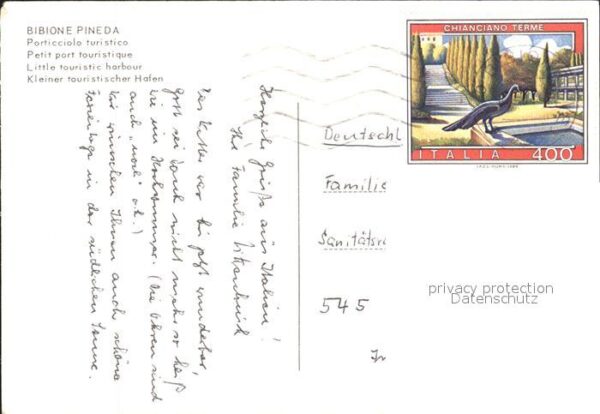 BIBIONE PINEDA
Porticciolo turistico
Petit port touristique
Little touristic harbour
Kleiner touristischer Hafen
CHIANCIANO TERME
ITALIA 400
Deutschl
Familie
Sanitätsr
545
privacy protection
Datenschutz
Herzliche Grüße aus Italien!
Ihre Familie
Das Wetter war bis jetzt wunderbar,
Gott sei Dank nicht mehr so heiß
wie im Hochsommer. (Die Ohren sind
auch „noch" o.k.)
Wir wünschen Ihnen auch schöne
in der südlichen Sonne.